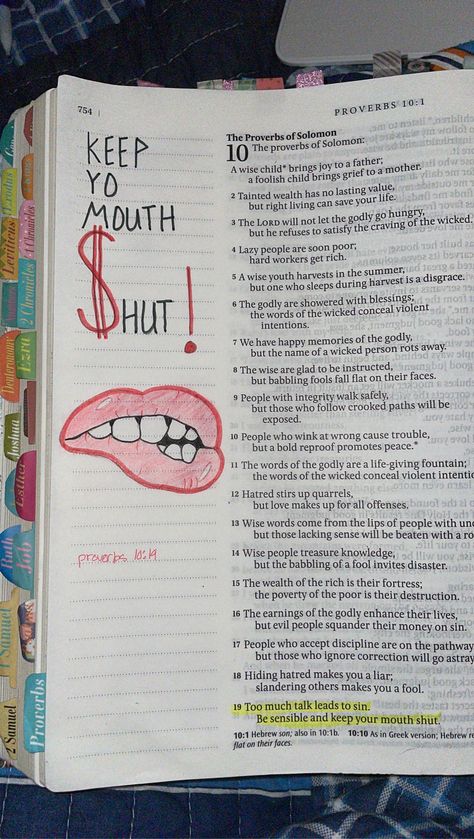 754
PROVERBS 10:1
KEEP
YO
MOUTH
$HUT!
proverbs 10:19
The Proverbs of Solomon
10 The proverbs of Solomon:
A wise child* brings joy to a father;
a foolish child brings grief to a mother.
2 Tainted wealth has no lasting value,
but right living can save your life.
3 The LORD will not let the godly go hungry,
but he refuses to satisfy the craving of the wicked.
4 Lazy people are soon poor;
hard workers get rich.
5 A wise youth harvests in the summer,
but one who sleeps during harvest is a disgrace.
6 The godly are showered with blessings;
the words of the wicked conceal violent
intentions.
7 We have happy memories of the godly,
but the name of a wicked person rots away.
8 The wise are glad to be instructed,
but babbling fools fall flat on their faces.
9 People with integrity walk safely,
but those who follow crooked paths will be
exposed.
10 People who wink at wrong cause trouble,
but a bold reproof promotes peace.*
11 The words of the godly are a life-giving fountain;
the words of the wicked conceal violent intentio
12 Hatred stirs up quarrels,
but love makes up for all offenses.
13 Wise words come from the lips of people with un
but those lacking sense will be beaten with a ro
14 Wise people treasure knowledge,
but the babbling of a fool invites disaster.
15 The wealth of the rich is their fortress;
the poverty of the poor is their destruction.
16 The earnings of the godly enhance their lives,
but evil people squander their money on sin.
17 People who accept discipline are on the pathway
but those who ignore correction will go astray
18 Hiding hatred makes you a liar;
slandering others makes you a fool.
19 Too much talk leads to sin.
Be sensible and keep your mouth shut.
10:1 Hebrew son; also in 10:1b. 10:10 As in Greek version; Hebrew re
flat on their faces.
Exodus
Leviticus
1 Chronicles
2 Chronicles
Deuteronomy
Ezra
Joshua
Esther
Ruth
Job
1 Samuel
2 Samuel
Proverbs